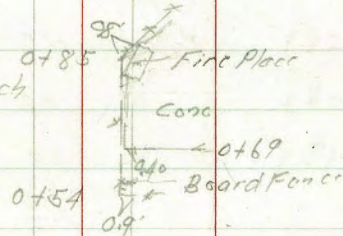 0+85
Fire Place
ch
Conc
0+69
0.40
0+54
Board Fence
0.9'